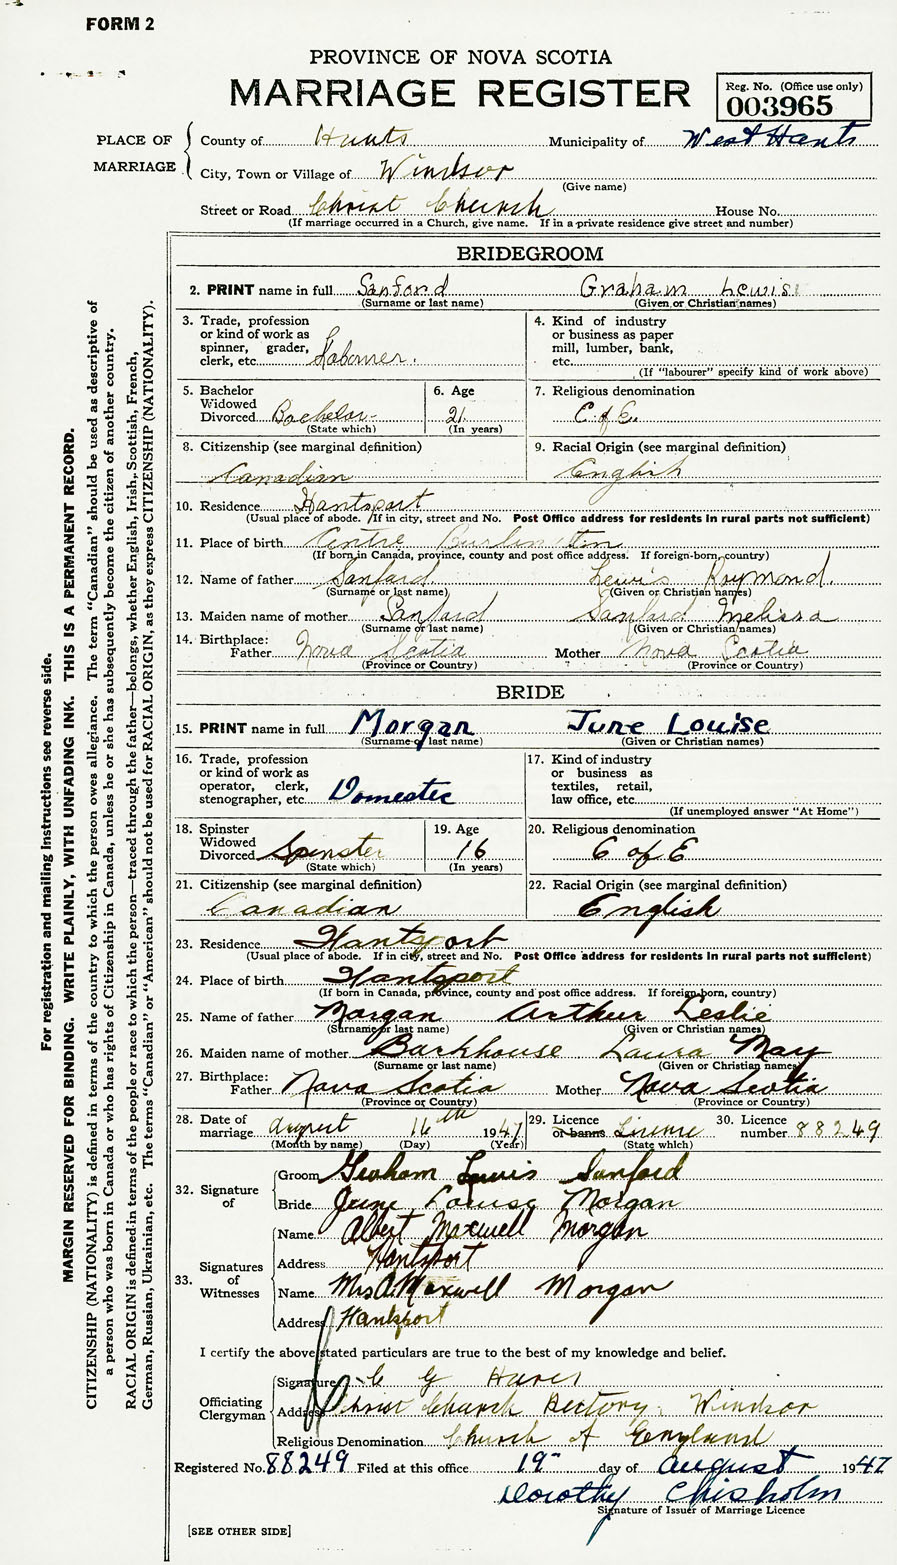 FORM 2
PROVINCE OF NOVA SCOTIA
MARRIAGE REGISTER
Reg. No. (Office use only)
003965
PLACE OF MARRIAGE
County of Hants Municipality of West Hants
City, Town or Village of Windsor
(Give name)
Street or Road Christ Church House No.
(If marriage occurred in a Church, give name. If in a private residence give street and number)
BRIDEGROOM
2. PRINT name in full Sanford Graham Lewis
(Surname or last name) (Given or Christian names)
3. Trade, profession or kind of work as spinner, grader, clerk, etc. Labourer.
4. Kind of industry or business as paper mill, lumber, bank, etc.
(If "labourer" specify kind of work above)
5. Bachelor Widowed Divorced Bachelor
(State which)
6. Age 21
(In years)
7. Religious denomination C of E.
8. Citizenship (see marginal definition) Canadian
9. Racial Origin (see marginal definition) English
10. Residence Hantsport
(Usual place of abode. If in city, street and No. Post Office address for residents in rural parts not sufficient)
11. Place of birth Centre Burlington
(If born in Canada, province, county and post office address. If foreign-born, country)
12. Name of father Sanford Lewis Raymond.
(Surname or last name) (Given or Christian names)
13. Maiden name of mother Sanford Sanford Melissa
(Surname or last name) (Given or Christian names)
14. Birthplace: Father Nova Scotia Mother Nova Scotia
(Province or Country) (Province or Country)
BRIDE
15. PRINT name in full Morgan June Louise
(Surname or last name) (Given or Christian names)
16. Trade, profession or kind of work as operator, clerk, stenographer, etc. Domestic
17. Kind of industry or business as textiles, retail, law office, etc.
(If unemployed answer "At Home")
18. Spinster Widowed Divorced Spinster
(State which)
19. Age 16
(In years)
20. Religious denomination C of E
21. Citizenship (see marginal definition) Canadian
22. Racial Origin (see marginal definition) English
23. Residence Hantsport
(Usual place of abode. If in city, street and No. Post Office address for residents in rural parts not sufficient)
24. Place of birth Hantsport
(If born in Canada, province, county and post office address. If foreign-born, country)
25. Name of father Morgan Arthur Leslie
(Surname or last name) (Given or Christian names)
26. Maiden name of mother Barkhouse Laura May
(Surname or last name) (Given or Christian names)
27. Birthplace: Father Nova Scotia Mother Nova Scotia
(Province or Country) (Province or Country)
28. Date of marriage August 16th 1947
(Month by name) (Day) (Year)
29. Licence or banns License
(State which)
30. Licence number 88249
32. Signature of
Groom Graham Lewis Sanford
Bride June Louise Morgan
33. Signatures of Witnesses
Name Albert Maxwell Morgan
Address Hantsport
Name Mrs A. Maxwell Morgan
Address Hantsport
I certify the above stated particulars are true to the best of my knowledge and belief.
Officiating Clergyman
Signature G
Address Christ Church Rectory, Windsor
Religious Denomination Church of England
Registered No. 88249 Filed at this office 19 day of August 1947
Dorothy Chisholm
Signature of Issuer of Marriage Licence
[SEE OTHER SIDE]
For registration and mailing instructions see reverse side.
MARGIN RESERVED FOR BINDING. WRITE PLAINLY, WITH UNFADING INK. THIS IS A PERMANENT RECORD.
CITIZENSHIP (NATIONALITY) is defined in terms of the country to which the person owes allegiance. The term "Canadian" should be used as descriptive of
a person who was born in Canada or who has rights of Citizenship in Canada, unless he or she has subsequently become the citizen of another country.
RACIAL ORIGIN is defined in terms of the people or race to which the person—traced through the father—belongs, whether English, Irish, Scottish, French,
German, Russian, Ukrainian, etc. The terms "Canadian" or "American" should not be used for RACIAL ORIGIN, as they express CITIZENSHIP (NATIONALITY).